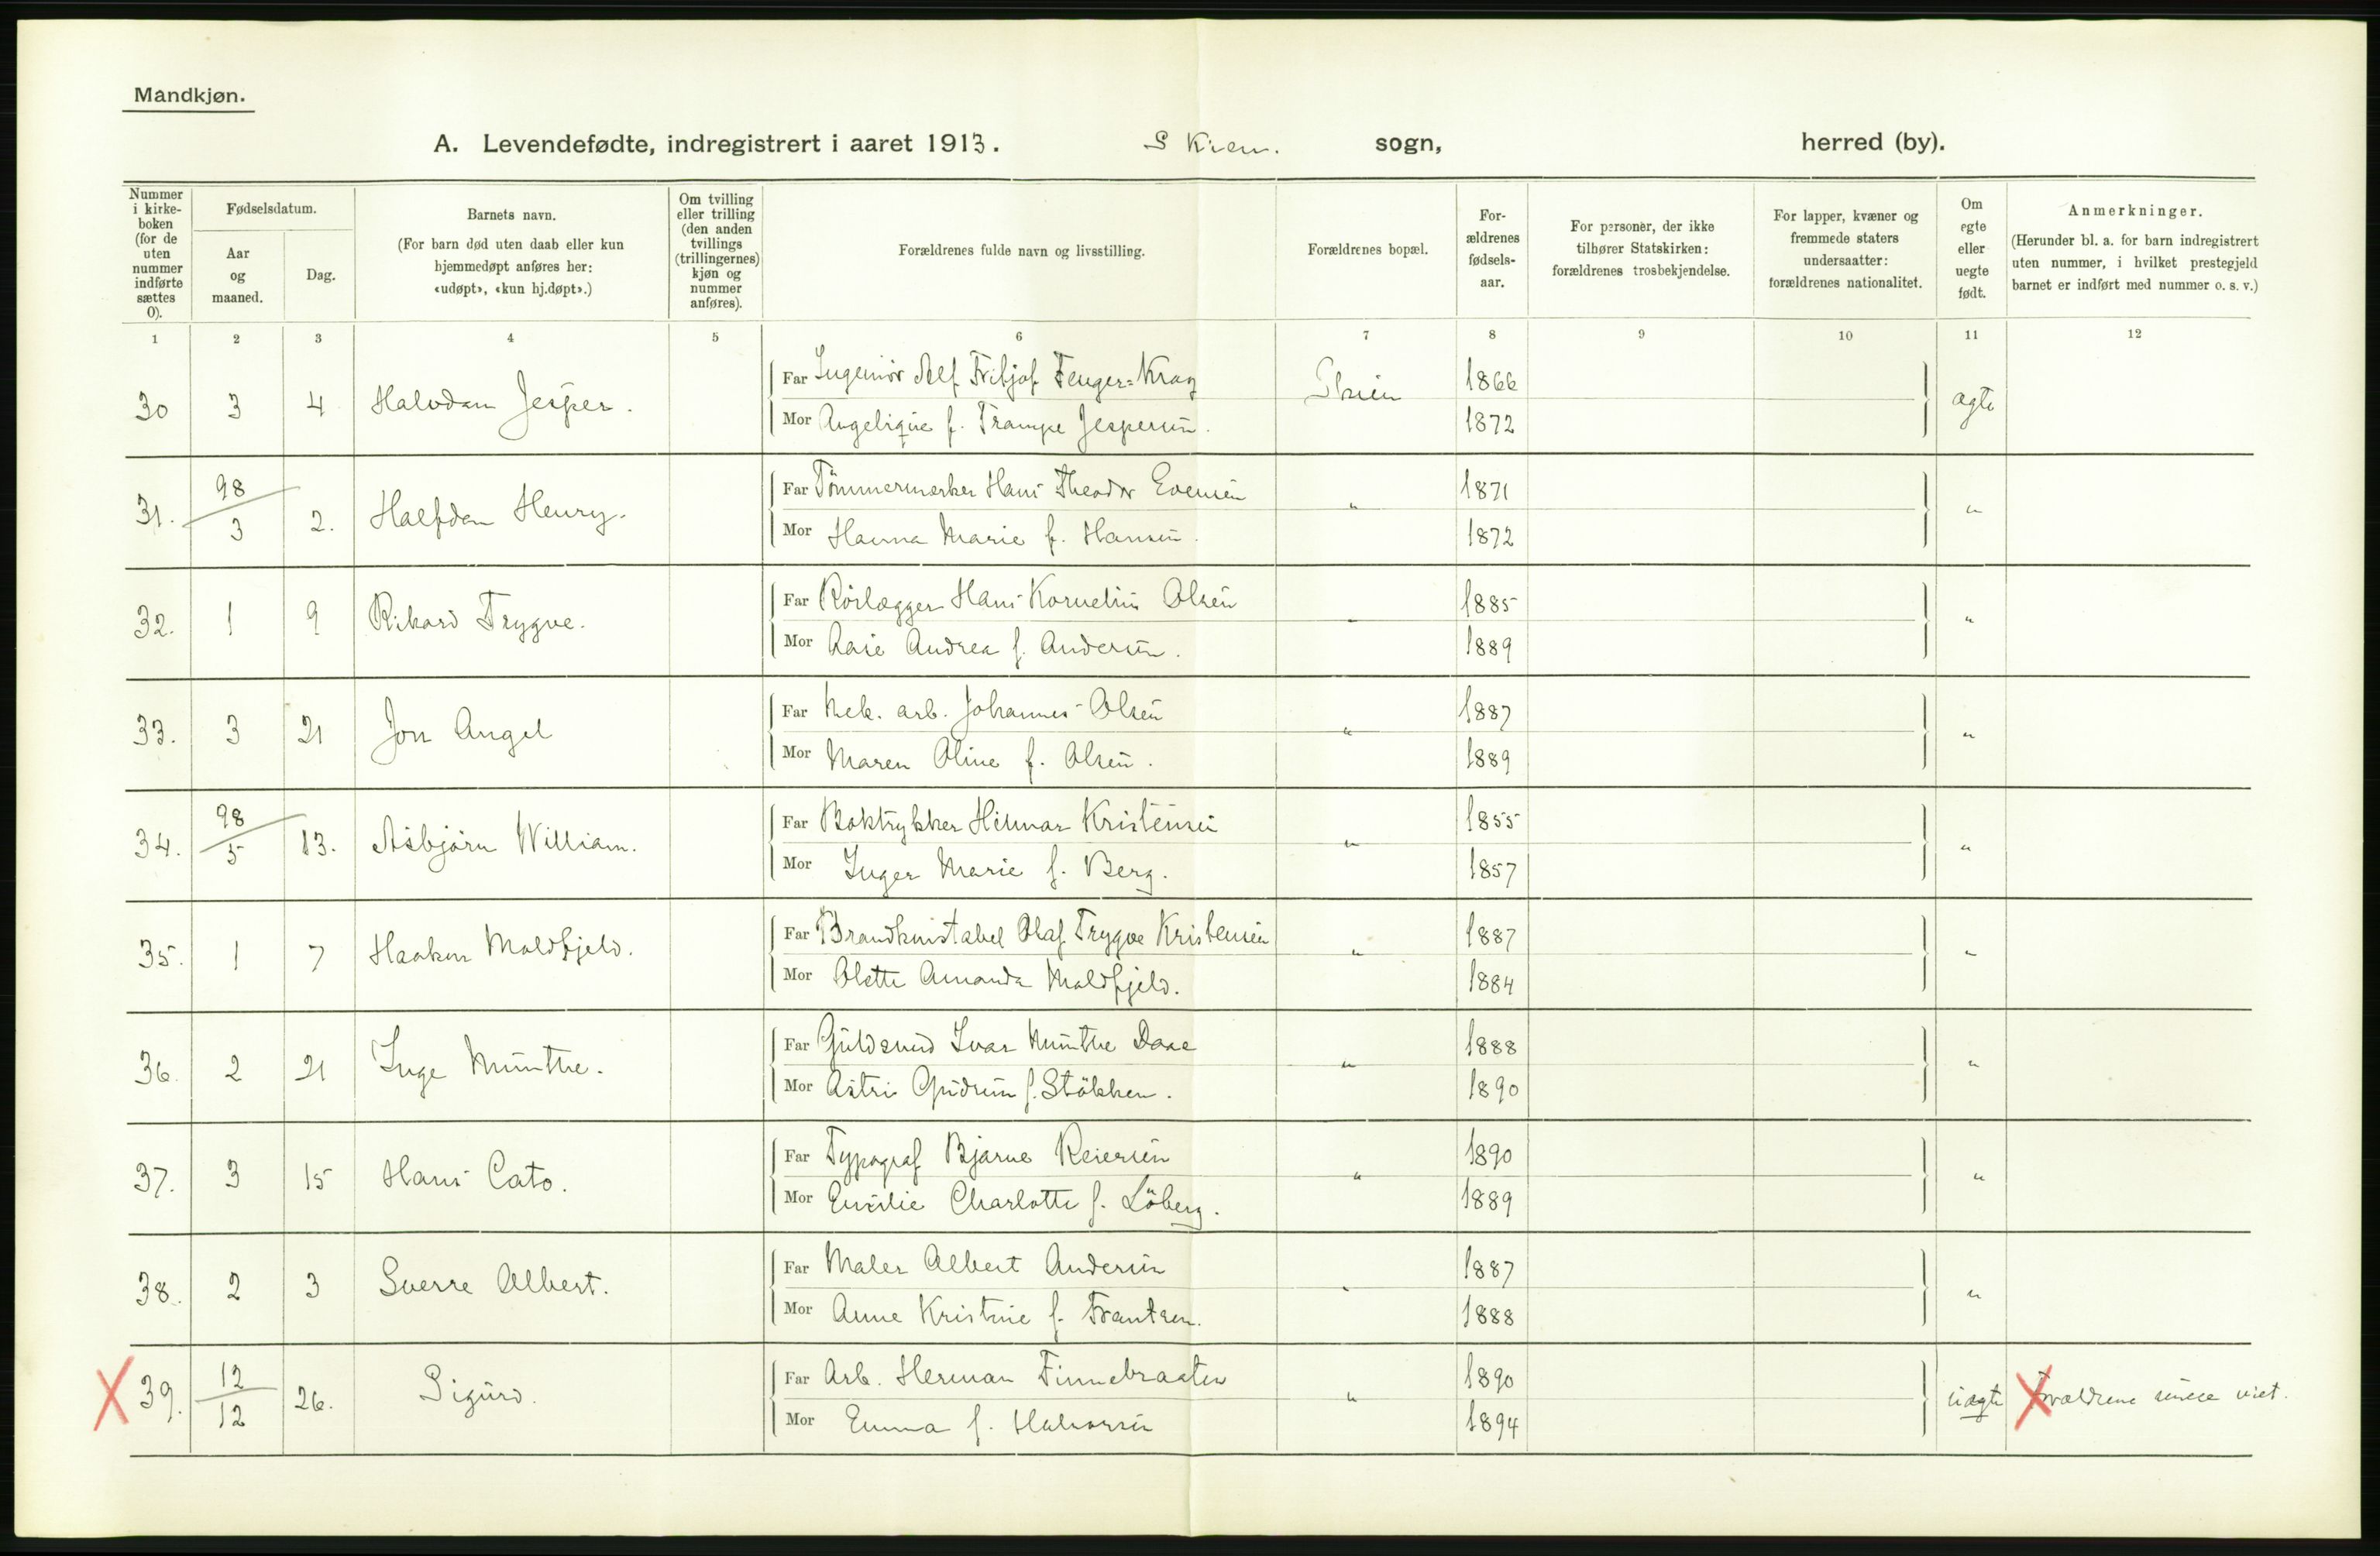 Mandkjøn.
A. Levendefødte, indregistrert i aaret 1913. Skien. sogn, herred (by).
Nummer i kirke-boken (for de uten nummer indførte sættes 0).
Fødselsdatum.
Aar og maaned.
Dag.
Barnets navn.
(For barn død uten daab eller kun hjemmedøpt anføres her: «udøpt», «kun hj.døpt».)
Om tvilling eller trilling (den anden tvillings (trillingernes) kjøn og nummer anføres).
Forældrenes fulde navn og livsstilling.
Forældrenes bopæl.
For-ældrenes fødsels-aar.
For personer, der ikke tilhører Statskirken: forældrenes trosbekjendelse.
For lapper, kvæner og fremmede staters undersaatter: forældrenes nationalitet.
Om egte eller uegte født.
Anmerkninger.
(Herunder bl. a. for barn indregistrert uten nummer, i hvilket prestegjeld barnet er indført med nummer o. s. v.)
1 2 3 4 5 6 7 8 9 10 11 12
Far Ingeniør Alf Fritjof Fenger=Krag Skien 1866
30 3 4 Halvdan Jesper. ægte
Mor Angelique f. Trampe Jespersen. 1872
98 Far Tømmermerker Hans Theodor Evensen 1871
31. 3 2. Halfdan Henry. " "
Mor Hanna Marie f. Hansen. 1872
Far Rørlægger Hans Kornelius Olsen 1885
32. 1 9 Rikard Trygve. " "
Mor Aase Andrea f. Andersen. 1889
Far Mek. arb. Johannes Olsen 1887
33. 3 21 Jon Angel " "
Mor Maren Oline f. Olsen. 1889
98 Far Boktrykker Hilmar Kristensen 1855
34. 5 13. Asbjørn William. " "
Mor Inger Marie f. Berg. 1857
Far Brandkonstabel Olaf Trygve Kristensen 1887
35. 1 7 Haakon Moldfjeld. " "
Mor Olette Amanda Moldfjeld. 1884
Far Guldsmed Ivar Munthe Daae 1888
36. 2 21 Inge Munthe. " "
Mor Astri Gudrun f. Stökken. 1890
Far Typograf Bjarne Reiersen 1890
37. 3 15 Hans Cato. " "
Mor Emilie Charlotte f. Löberg. 1889
Far Maler Albert Andersen 1887
38. 2 3 Sverre Albert. " "
Mor Anne Kristine f. Frantzen. 1888
12 Far Arb. Herman Finnebraaten 1890
X 39. 12 26. Sigurd. " uægte X Forældrene senere viet.
Mor Emma f. Halvorsen 1894